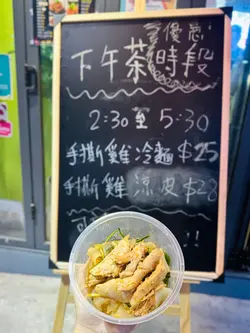 優惠
下午茶時段
2:30至5:30
手撕雞冷麵$25
手撕雞涼皮$28